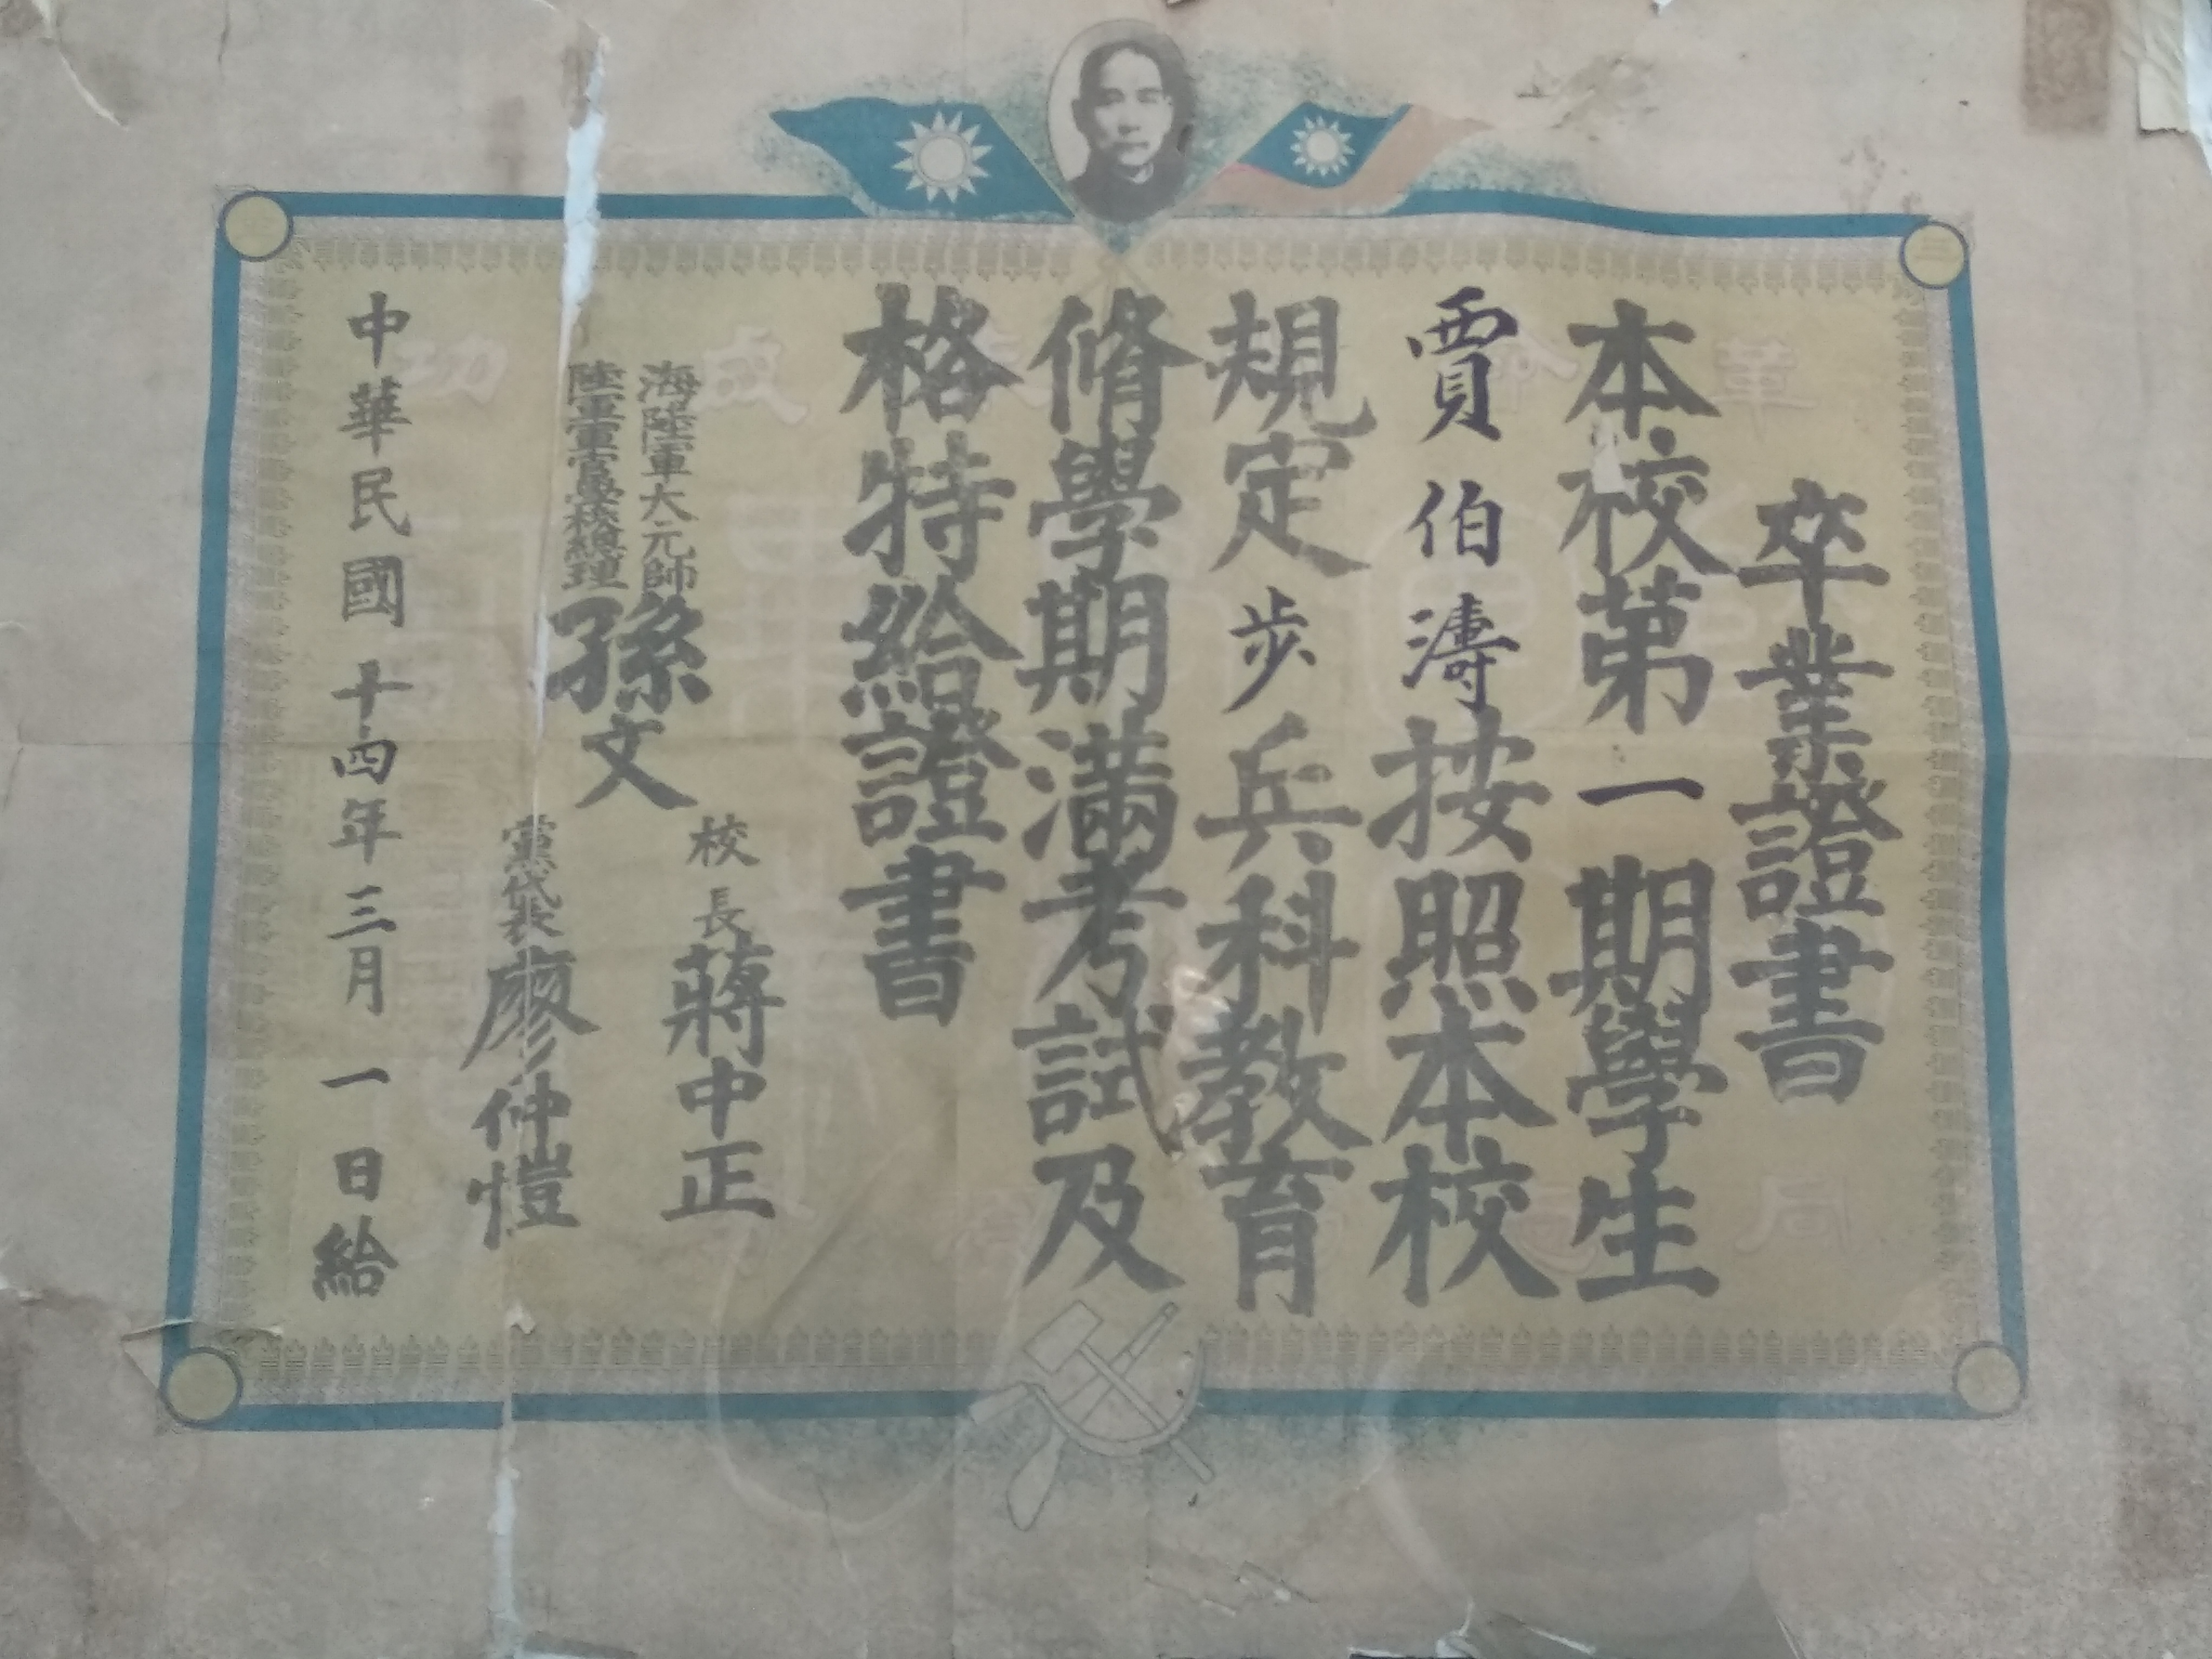 卒業證書
本校第一期學生
賈伯濤按照本校
規定步兵科教育
脩學期滿考試及
格特給證書
海陸軍大元帥
陸軍軍官學校總理
孫文
校長蔣中正
黨代表廖仲愷
中華民國十四年三月一日給